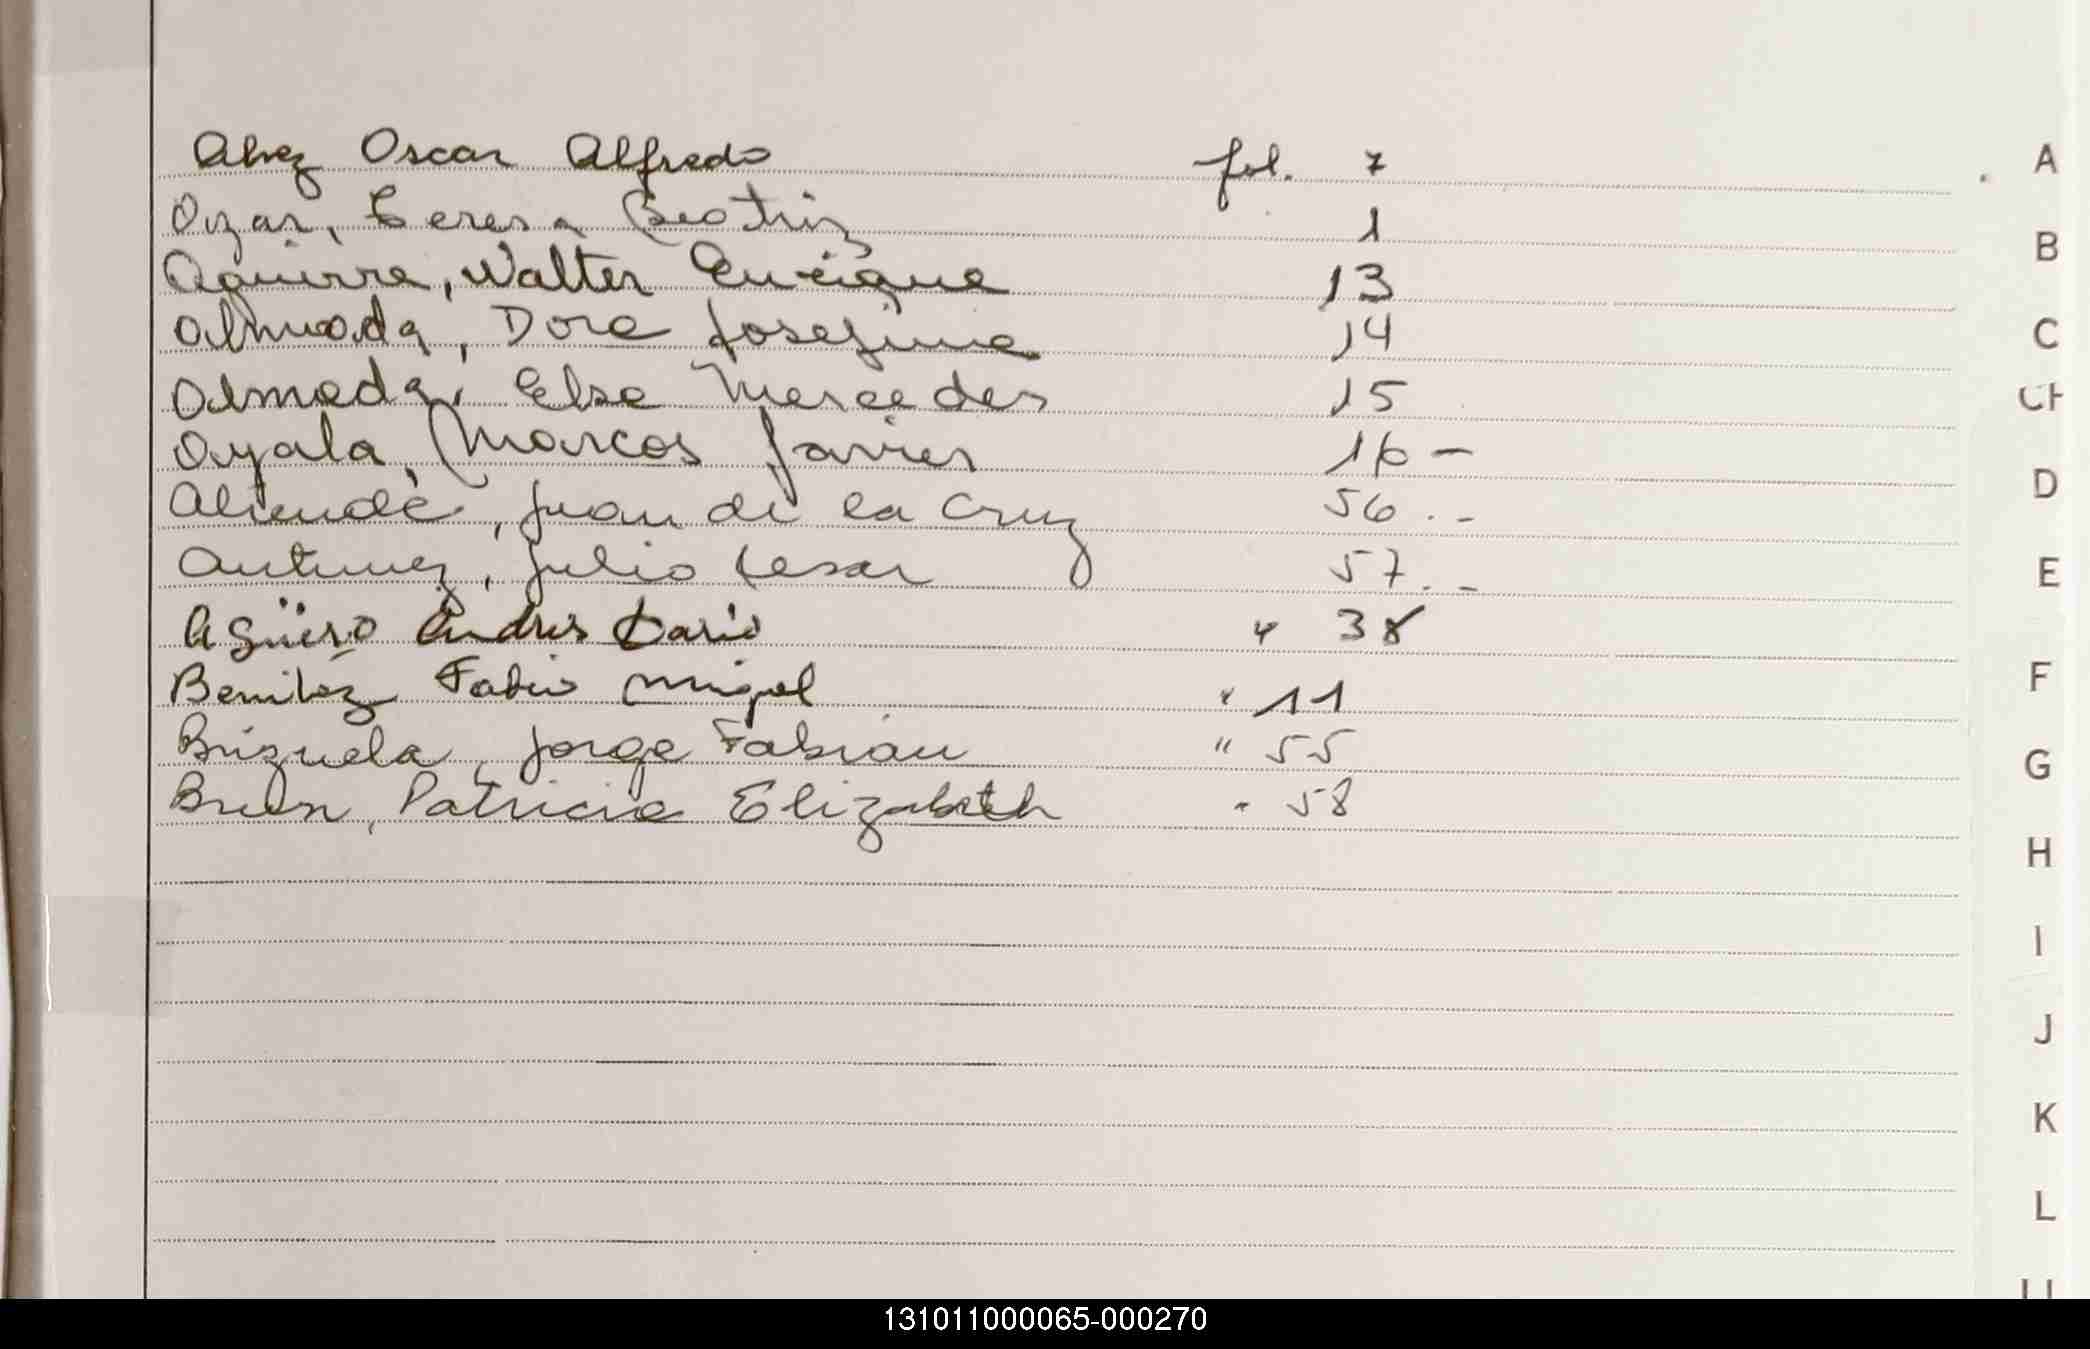 Alvez Oscar Alfredo fol. 7
Ozar, Teresa Beatriz 1
Aguirre, Walter Enrique 13
Almada, Dora Josefina 14
Almada, Elsa Mercedes 15
Ayala, Marcos Javier 16 -
Aliendé, Juan de la Cruz 56 . -
Antunez, Julio Cesar 57 . -
Agüero Andres Dario " 38
Benitez Fabio Miguel " 11
Brizuela, Jorge Fabian " 55
Patricia Elizabeth " 58
A
B
C
CH
D
E
F
G
H
I
J
K
L
131011000065-000270